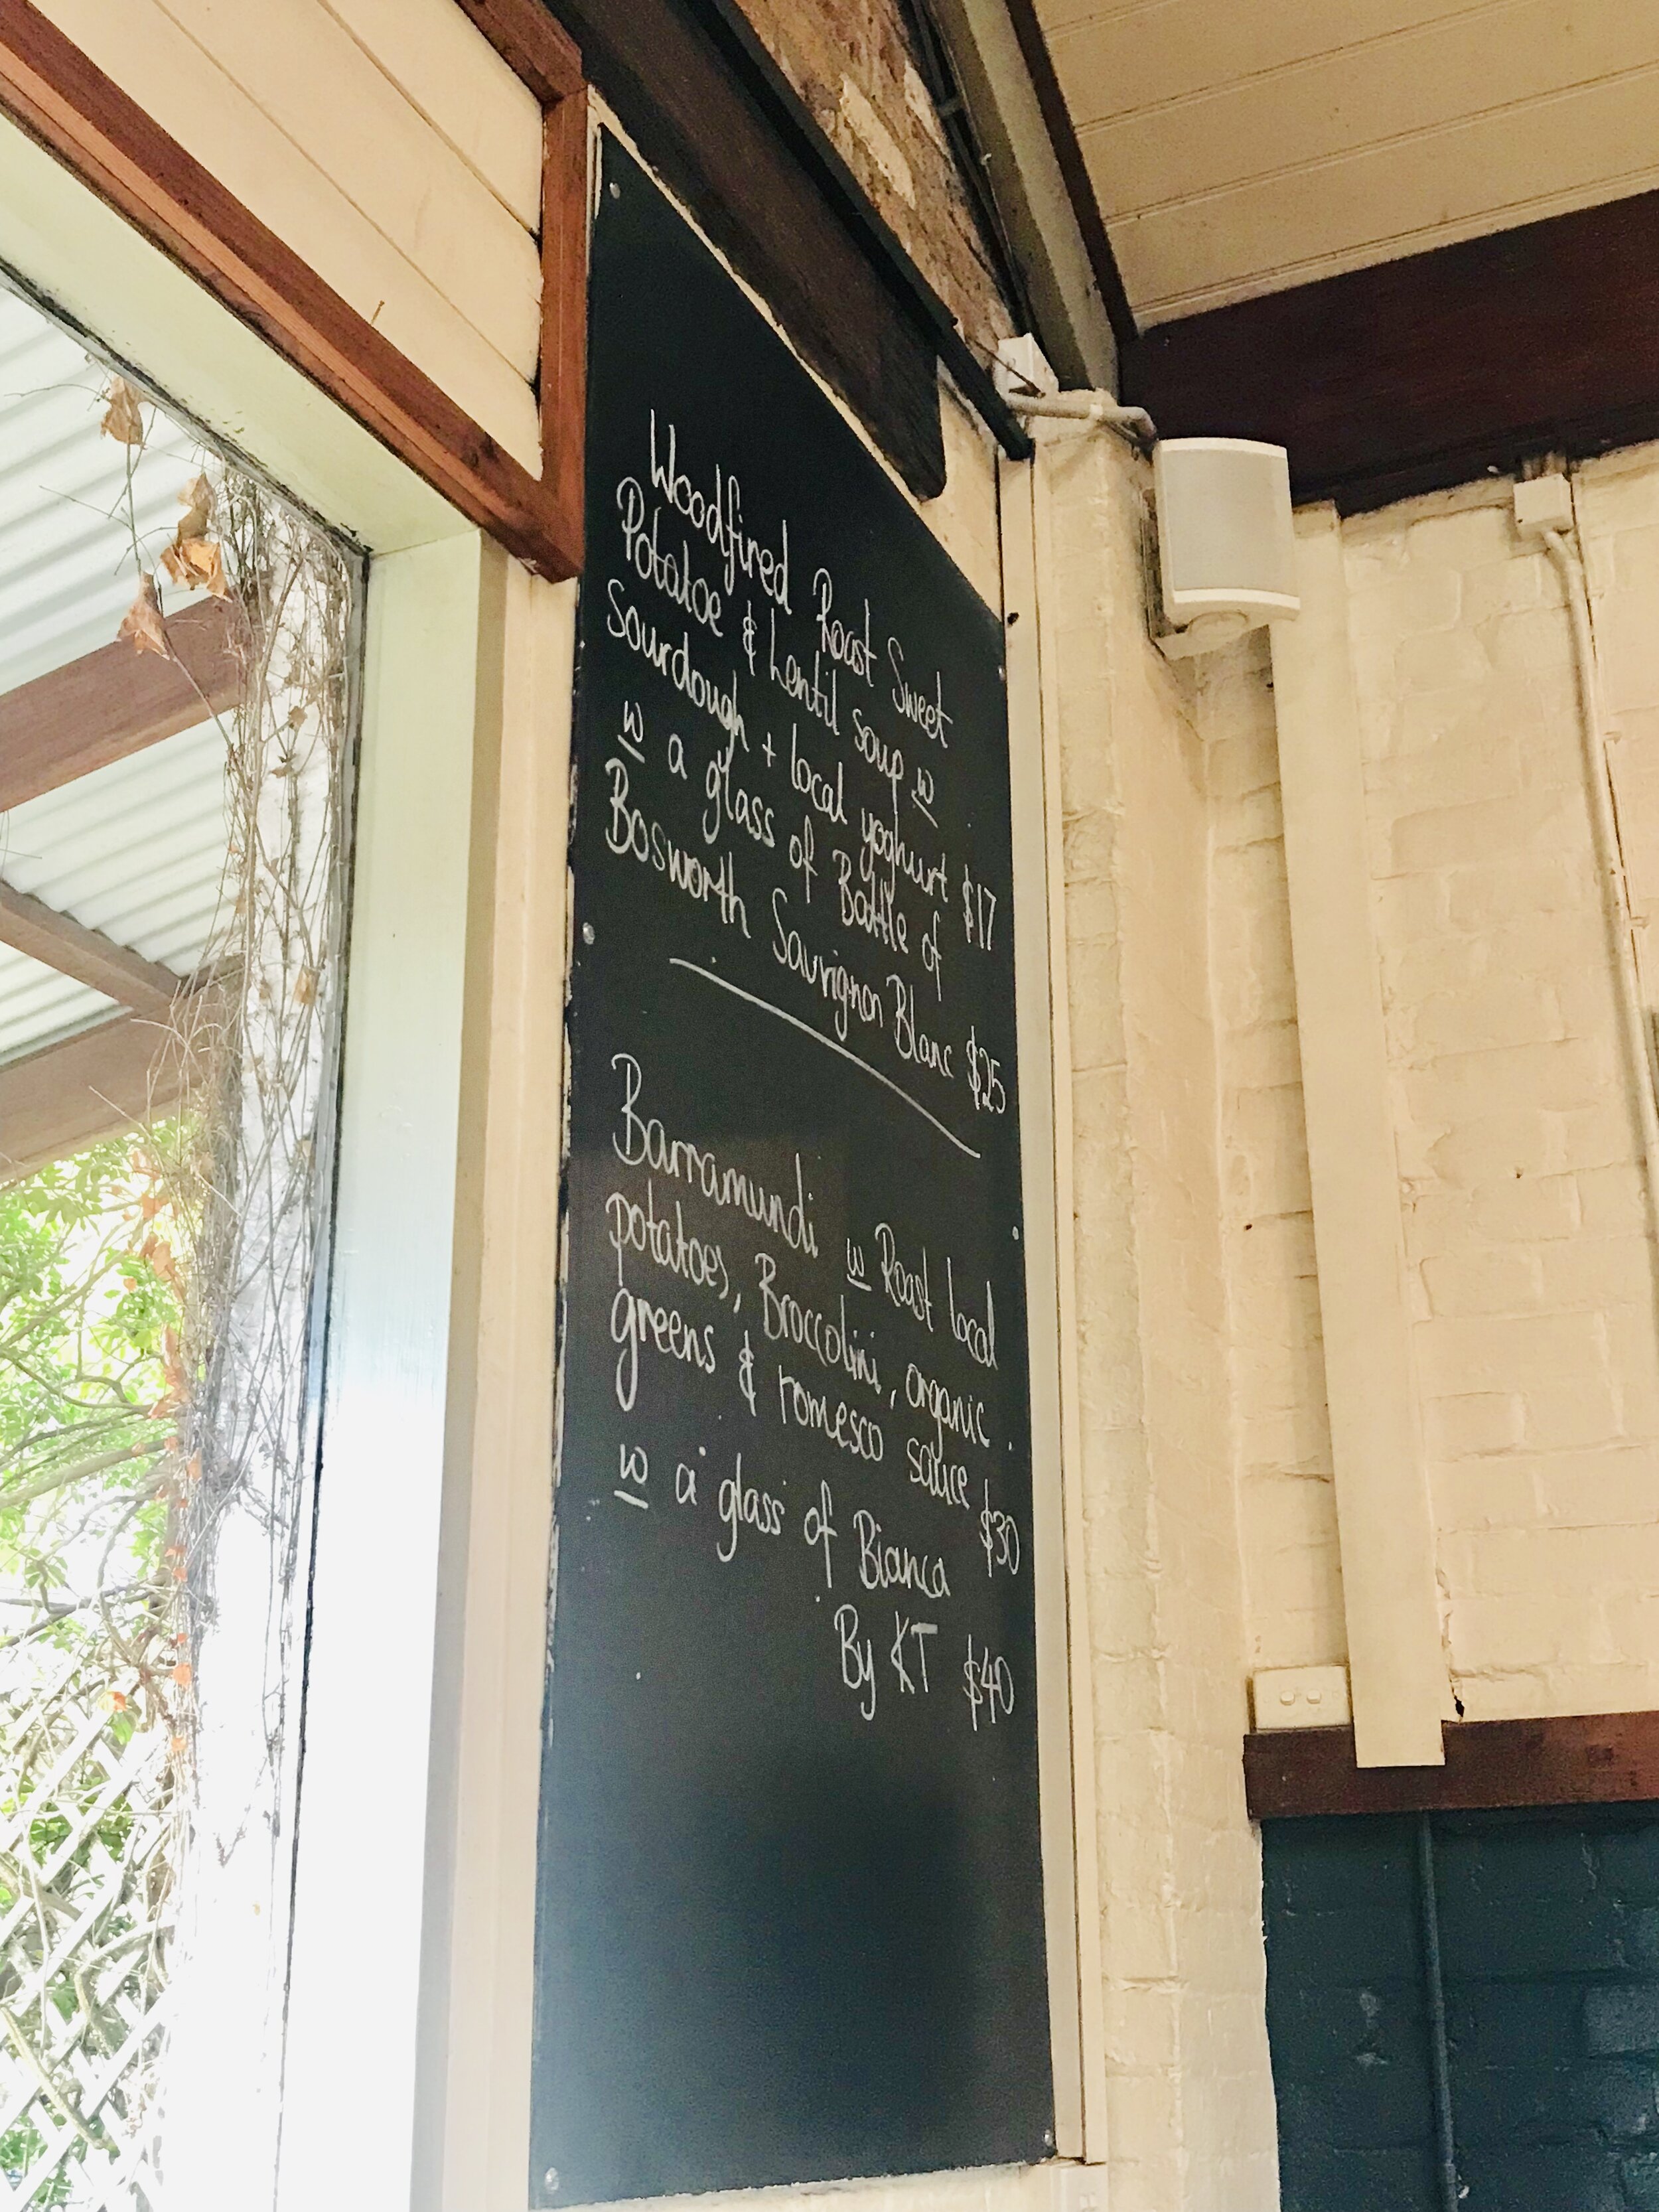 Woodfired Roast Sweet
Potatoe & Lentil soup w
Sourdough + local yoghurt $17
w a glass of Battle of
Bosworth Sauvignon Blanc $25
Barramundi w Roast local
potatoes, Broccolini, organic
greens & romesco sauce $30
w a glass of Bianca
By KT $40